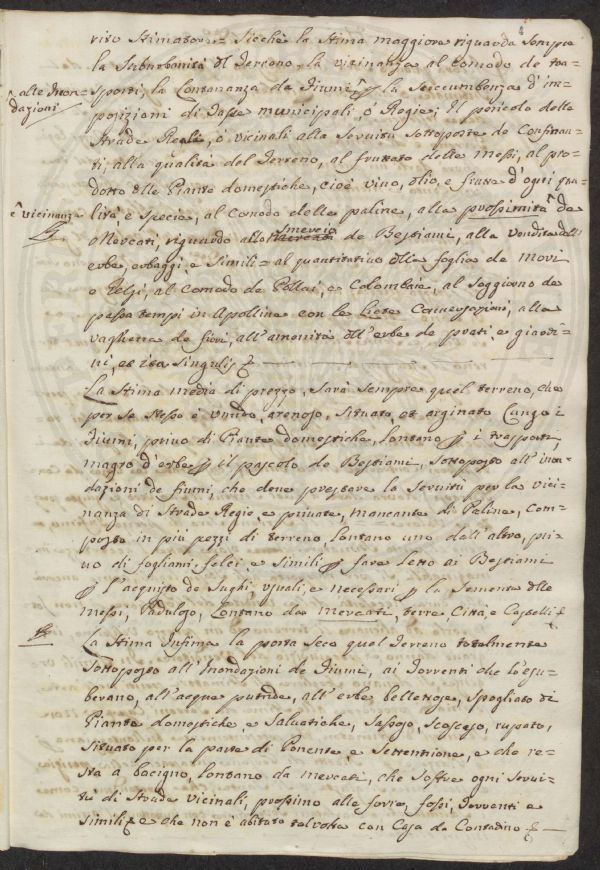 4
rito stimatore = Sicchè la stima maggiore riguarda sempre
la Suburbanità del Terreno, la vicinanza al comodo de tra=
^ alte Inon=
dazioni
sporti, la lontananza da Fiumi, ^ la d'im=
posizioni di Tasse municipali, ò Regie; Il pericolo delle
strade Reali, ò vicinali alla servitù sottoposte de Confinan=
ti, alla qualità del Terreno, al fruttato delle messi, al pro=
dotto delle Piante domestiche, cioè vino, olio, e frutta d'ogni qua=
^ e vicinanza
lità e specie, al comodo delle paline, alla prossimità ^ de
Mercati, riguardo allo smercio de Bestiami, alla vendita dell'
erbe, erbaggi, e simili = al quantitativo della foglia de mori
o Gelsi, al comodo de Pollai, e Colombaie, al soggiorno de
passatempi in Apolline con le liete Conversazioni, alla
vaghezza de fiori, all'amenità dell'erbe de prati, e giardi=
ni, et ita singulis
La stima media di prezzo, sarà sempre quel terreno, che
per se stesso è umido, arenoso, situato, et arginato lungo i
Fiumi, privo di Piante domestiche, lontano p i trasporti,
magro d'erbe p il pascolo de Bestiami, sottoposto all'inon=
dazioni de fiumi, che deve prestare la servitù per la vici=
nanza di strade Regie, e private, mancante di Paline, Com=
posto in più pezzi di terreno, lontano uno dall'altro, pri=
vo di fogliami, felci, e simili p fare letto ai Bestiami
p l'acquisto de sughi, usuali, e necessari p la sementa delle
messi, Paduloso, lontano da mercati, terre, Città, e Castelli
La stima Infima la porta seco quel Terreno totalmente
sottoposto all'Inondazioni de Fiumi, ai Torrenti che l'esu=
berano, all'acque putride, all'erbe bellettose, spogliato di
Piante domestiche, e salvatiche, sassoso, scosceso, rupato,
situato per la parte di Ponente, e settentrione, e che re=
sta a bacigno, lontano da mercati, che soffre ogni servi=
tù di strade vicinali, prossimo alle forre, fossi, Torrenti e
simili, e che non è abitato talvolta con Casa da Contadino